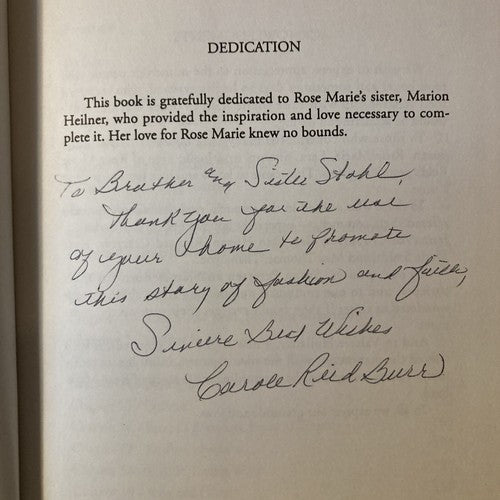 DEDICATION
This book is gratefully dedicated to Rose Marie's sister, Marion
Heilner, who provided the inspiration and love necessary to com-
plete it. Her love for Rose Marie knew no bounds.
To Brother and Sister Stohl,
Thank you for the use
of your home to promote
this story of fashion and faith,
Sincere Best Wishes
Carole Reid Burr